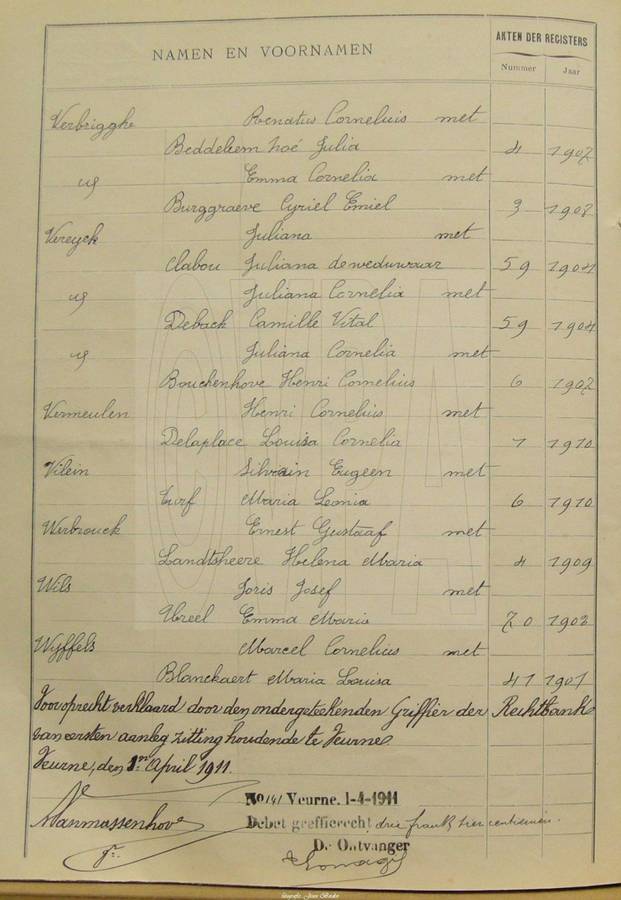 NAMEN EN VOORNAMEN
AKTEN DER REGISTERS
Nummer Jaar
Verbrigghe Renatus Cornelius met
Beddeleem Zoé Julia 4 1907
id Emma Cornelia met
Burggraeve Cyriel Emiel 3 1908
Vereyck Juliana met
Clabou Juliana de weduwaar 59 1904
id Juliana Cornelia met
Deback Camille Vital 59 1904
id Juliana Cornelia met
Bouckenhove Henri Cornelius 6 1907
Vermeulen Henri Cornelius met
Delaplace Louisa Cornelia 1 1910
Vilein Silvain Eugeen met
Turf Maria Leonia 6 1910
Werbrouck Ernest Gustaaf met
Landtsheere Helena Maria 4 1909
Wils Joris Josef met
Ureel Emma Maria 20 1903
Wyffels Marcel Cornelius met
Blanckaert Maria Louisa 41 1901
Voor oprecht verklaard door den ondergeteekenden Griffier der Rechtbank
van eersten aanleg zitting houdende te Veurne
Veurne, den 1en April 1911.
Veurne. 1-4-1911
Vanmassenhove
Debet greffierecht drie frank tien centiemen.
De Ontvanger